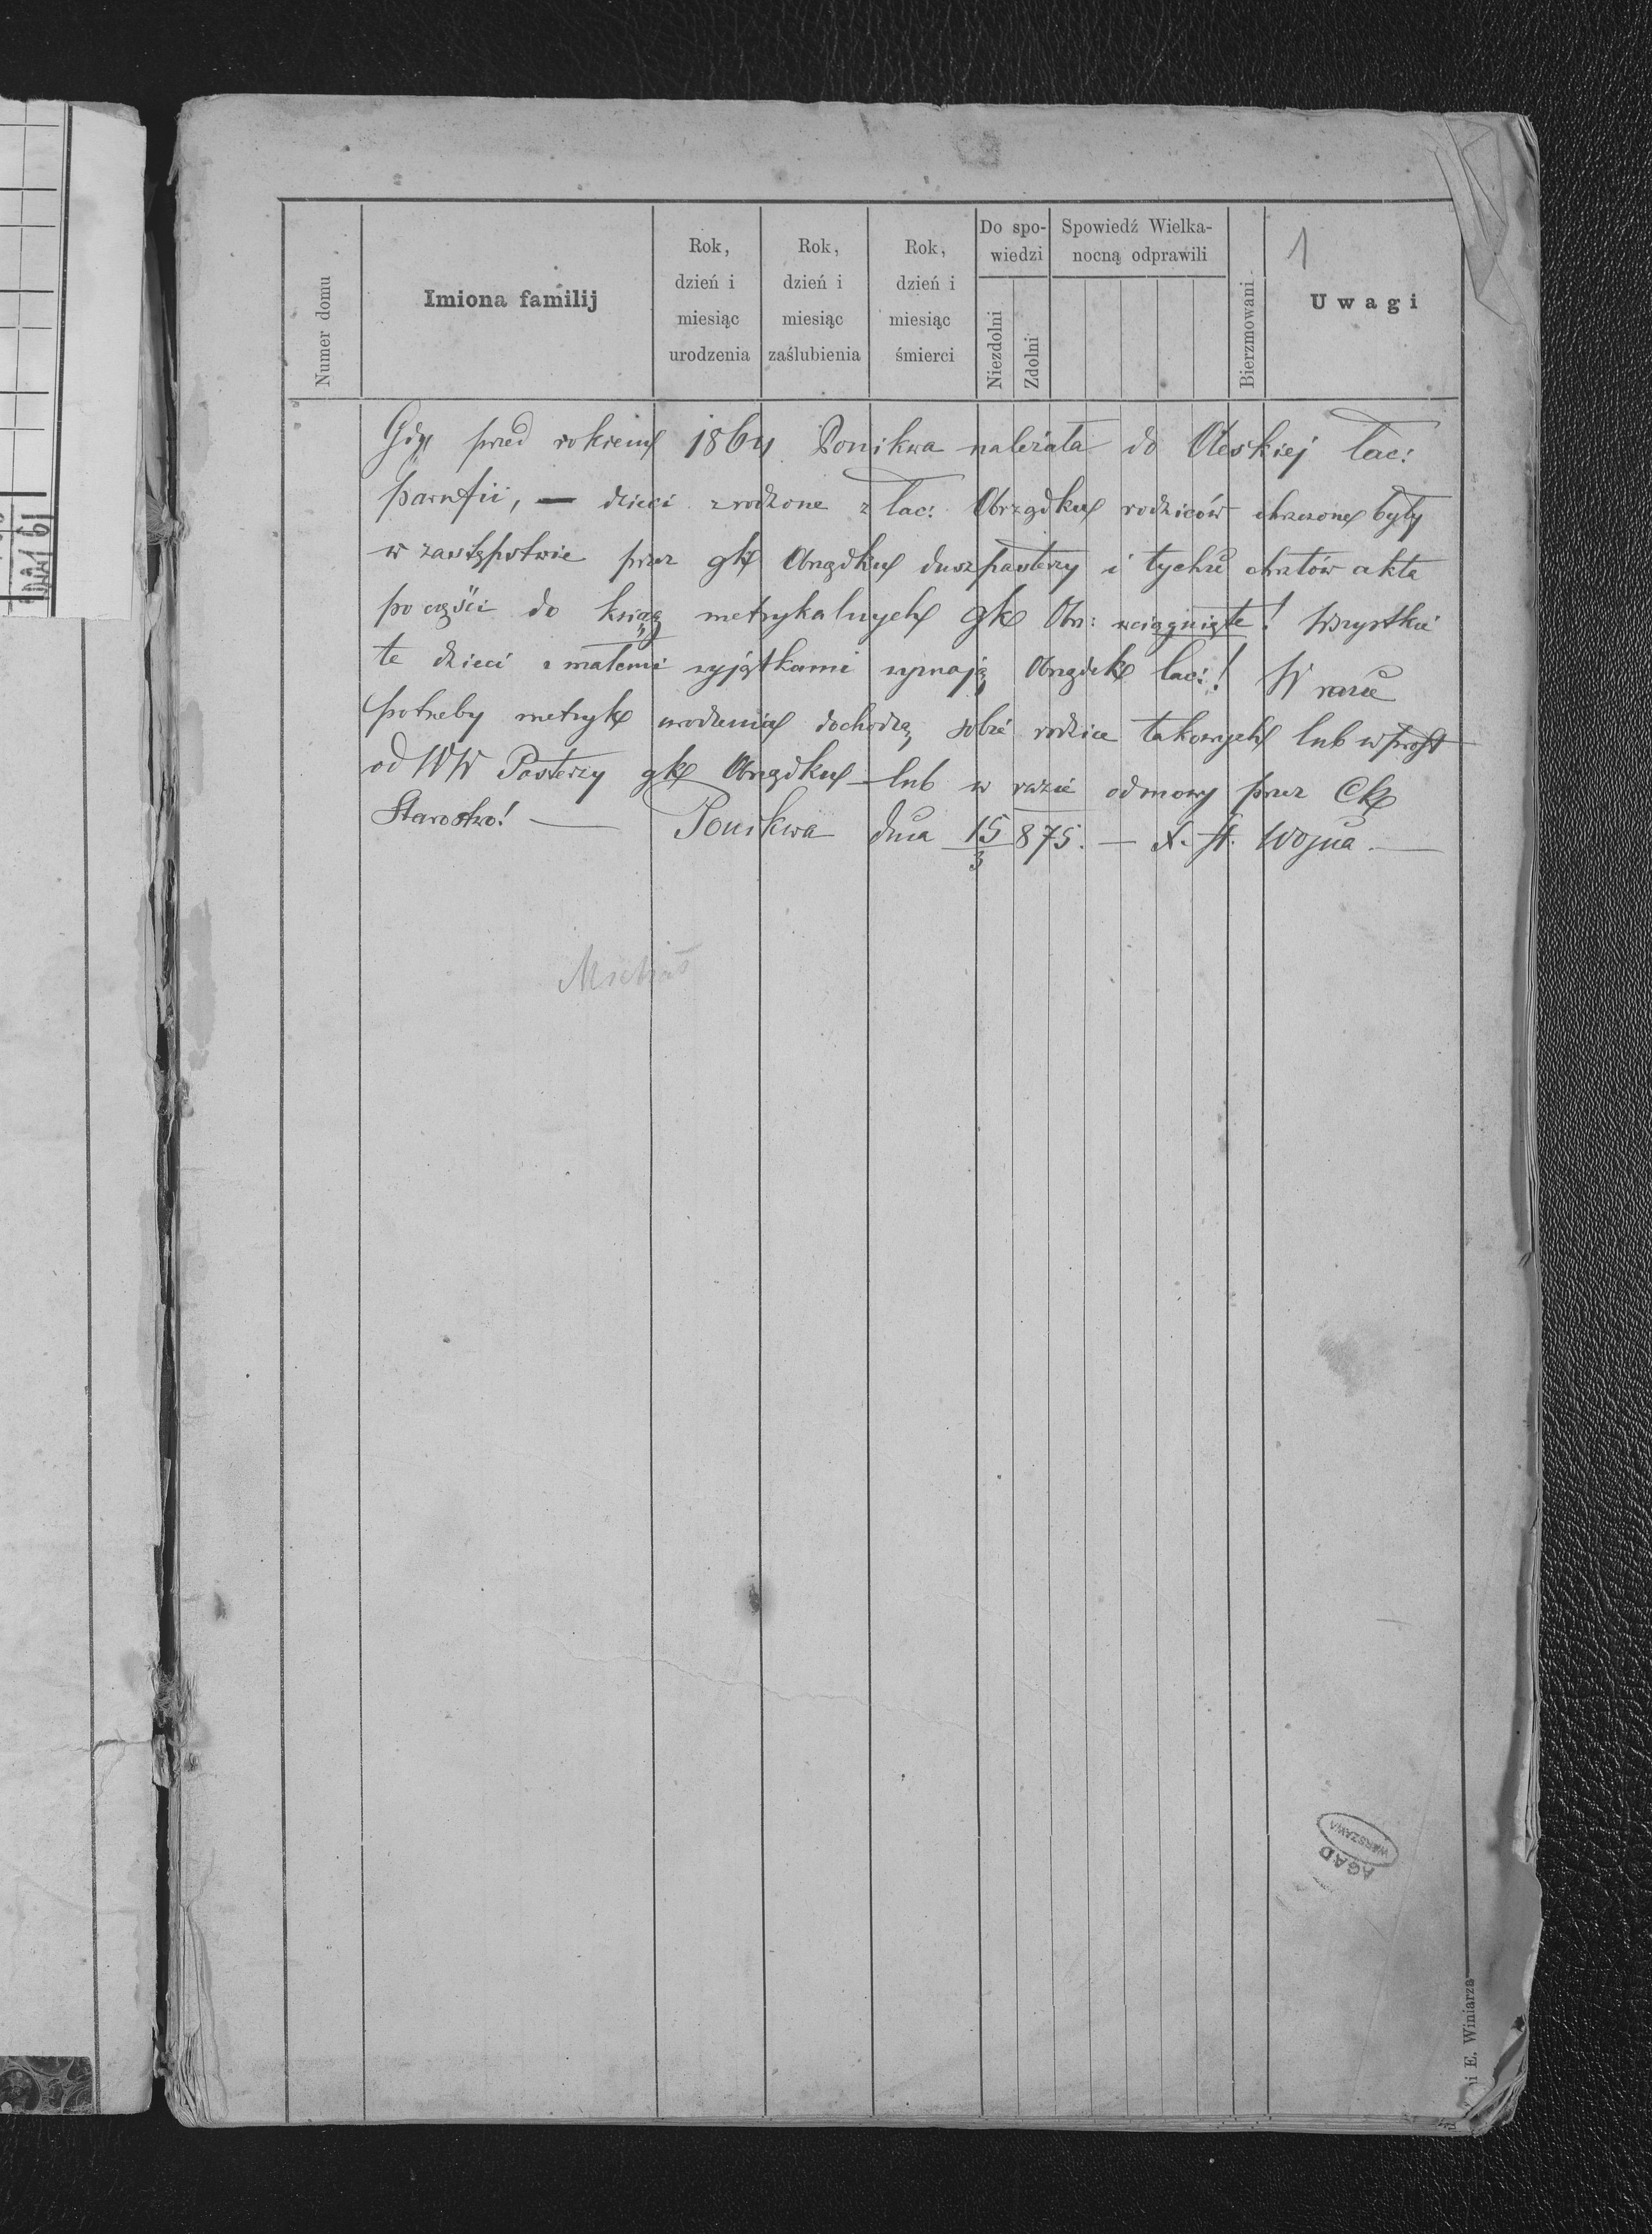 1
Numer domu
Imiona familij
Rok, dzień i miesiąc urodzenia
Rok, dzień i miesiąc zaślubienia
Rok, dzień i miesiąc śmierci
Do spo-
wiedzi
Niezdolni
Zdolni
Spowiedź Wielka-
nocną odprawili
Bierzmowani
Uwagi
Gdy przed rokiem 1864 Ponikwa należała do Oleskiej łac:
parafii, — dzieci zrodzone z łac: Obrządku rodziców chrzczone były
w zastępstwie przez gk Obrządku duszpasterzy i tychże chrztów akta
po części do ksiąg metrykalnych gk Obr: wciągnięte! Wszystkie
te dzieci z małemi wyjątkami wyznają Obrządek łac:! W razie
potrzeby metryk urodzenia dochodzą sobie rodzice takowych lub wprost
od WW Pasterzy gk Obrządku lub w razie odmowy przez Ck
Starostwo! — Ponikwa dnia 15/3 875. — X. St. Wojna —
AGAD
WARSZAWA
i E. Winiarza